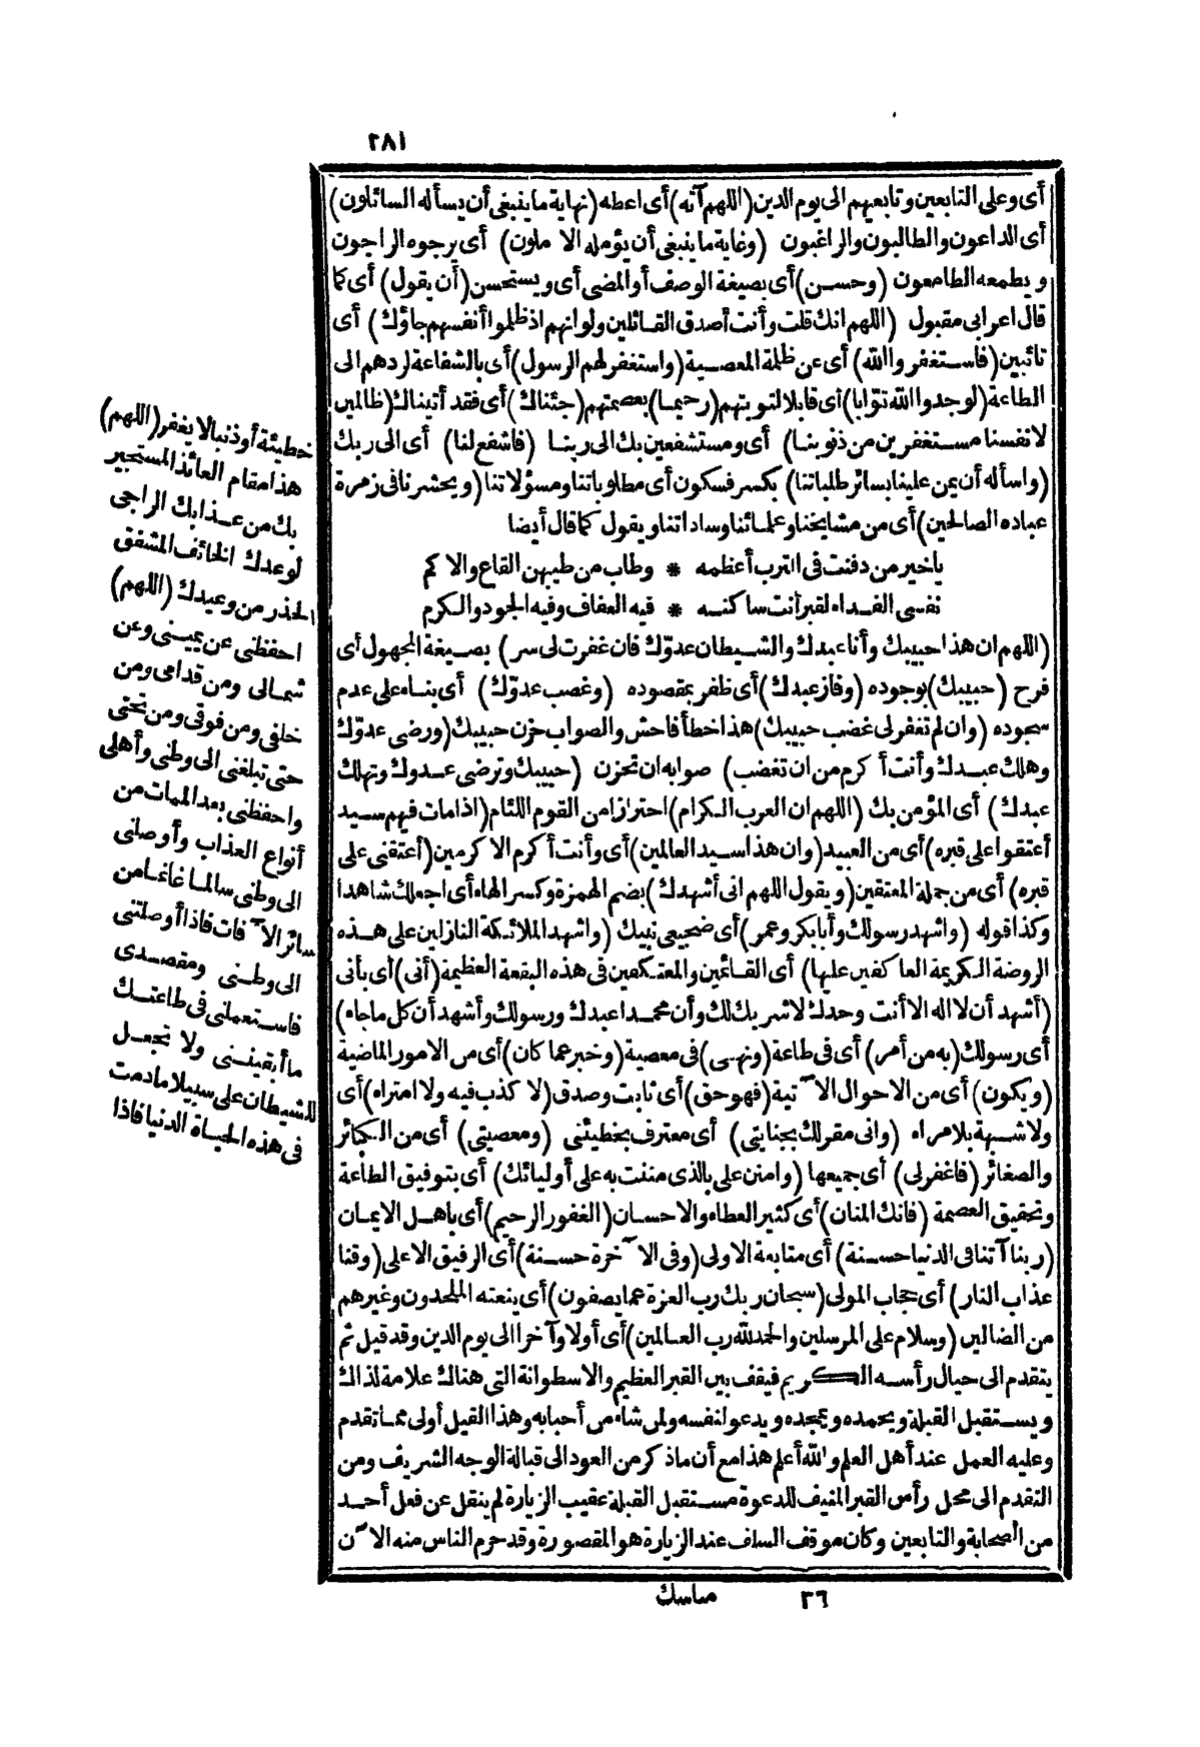 ٢٨١
أى وعلى التابعين وتابعيهم الى يوم الدين (اللهم آته) أى اعطه (نهاية ما ينبغى أن يسأله السائلون)
أى الداعون والطالبون والراغبون (وغاية ما ينبغى أن يؤمله الآملون) أى يرجوه الراجون
ويطمعه الطامعون (وحسن) أى بصيغة الوصف أو المضى أى ويستحسن (أن يقول) أى كما
قال اعرابى مقبول (اللهم انك قلت وأنت أصدق القائلين ولو انهم اذ ظلموا أنفسهم جاؤك) أى
تائبين (فاستغفروا الله) أى عن ظلمة المعصية (واستغفر لهم الرسول) أى بالشفاعة لردهم الى
الطاعة (لوجدوا الله توّابا) أى قابلا لتوبتهم (رحيما) بعصمتهم (جئناك) أى فقد أتيناك (ظالمين
لانفسنا مستغفرين من ذنوبنا) أى ومستشفعين بك الى ربنا (فاشفع لنا) أى الى ربك
(واسأله أن يمن علينا بسائر طلباتنا) بكسر فسكون أى مطلوباتنا ومسؤلاتنا (ويحشرنا فى زمرة
عباده الصالحين) أى من مشايخنا وعلمائنا وساداتنا ويقول كما قال أيضا
ياخير من دفنت فى الترب أعظمه * وطاب من طيبهن القاع والاكم
نفسى الفداء لقبر أنت ساكنه * فيه العفاف وفيه الجود والكرم
(اللهم ان هذا حبيبك وأنا عبدك والشيطان عدوّك فان غفرت لى سر) بصيغة المجهول أى
فرح (حبيبك) بوجوده (وفاز عبدك) أى ظفر بمقصوده (وغصب عدوّك) أى بناء على عدم
سجوده (وان لم تغفر لى غضب حبيبك) هذا خطأ فاحش والصواب حزن حبيبك (ورضى عدوّك
وهلك عبدك وأنت أكرم من ان تغضب) صوابه ان تحزن (حبيبك وترضى عدوك وتهلك
عبدك) أى المؤمن بك (اللهم ان العرب الكرام) احترازا من القوم اللئام (اذا مات فيهم سيد
أعتقوا على قبره) أى من العبيد (وان هذا سيد العالمين) أى وأنت أكرم الاكرمين (أعتقنى على
قبره) أى من جملة المعتقين (ويقول اللهم انى أشهدك) بضم الهمزة وكسر الهاء أى اجعلك شاهدا
وكذا قوله (واشهد رسولك وأبا بكر وعمر) أى ضجيعى نبيك (واشهد الملائكة النازلين على هذه
الروضة الكريمة العاكفين عليها) أى القائمين والمعتكفين فى هذه البقعة العظيمة (أنى) أى بأنى
(أشهد أن لا اله الا أنت وحدك لا شريك لك وأن محمدا عبدك ورسولك وأشهد أن كل ما جاء)
أى رسولك (به من أمر) أى فى طاعة (ونهى) فى معصية (وخبر عما كان) أى من الامور الماضية
(ويكون) أى من الاحوال الآتية (فهو حق) أى ثابت وصدق (لا كذب فيه ولا امتراء) أى
ولا شبهة بلا مراء (وانى مقر لك بجنايتى) أى معترف بخطيئتى (ومعصيتى) أى من الكبائر
والصغائر (فاغفر لى) أى جميعها (وامنن على بالذى مننت به على أوليائك) أى بتوفيق الطاعة
وتحقيق العصمة (فانك المنان) أى كثير العطاء والاحسان (الغفور الرحيم) أى باهل الايمان
(ربنا آتنا فى الدنيا حسنة) أى متابعة الاولى (وفى الآخرة حسنة) أى الرفيق الاعلى (وقنا
عذاب النار) أى حجاب المولى (سبحان ربك رب العزة عما يصفون) أى ينعته الملحدون وغيرهم
من الضالين (وسلام على المرسلين والحمد لله رب العالمين) أى أولا وآخرا الى يوم الدين وقد قيل ثم
يتقدم الى حيال رأسه الكريم فيقف بين القبر العظيم والاسطوانة التى هناك علامة لذاك
ويستقبل القبلة ويحمده ويمجده ويدعو لنفسه ولمن شاء من أحبابه وهذا القيل أولى مما تقدم
وعليه العمل عند أهل العلم والله أعلم هذا مع أن ما ذكر من العود الى قبالة الوجه الشريف ومن
التقدم الى محل رأس القبر المنيف للدعوة مستقبل القبلة عقيب الزيارة لم ينقل عن فعل أحد
من الصحابة والتابعين وكان موقف السلف عند الزيارة هو المقصورة وقد حرم الناس منه الآن
٣٦ مناسك
خطيئة أو ذنبا لا يغفر (اللهم)
هذا مقام العائذ المستجير
بك من عذابك الراجى
لوعدك الخائف المشفق
الحذر من وعيدك (اللهم)
احفظنى عن يمينى وعن
شمالى ومن قدامى ومن
خلفى ومن فوقى ومن تحتى
حتى تبلغنى الى وطنى وأهلى
واحفظنى بعد الممات من
أنواع العذاب وأوصلنى
الى وطنى سالما غانما من
سائر الآفات فاذا أوصلتنى
الى وطنى ومقصدى
فاستعملنى فى طاعتك
ما أبقيتنى ولا تجعل
للشيطان على سبيلا ما دمت
فى هذه الحياة الدنيا فاذا